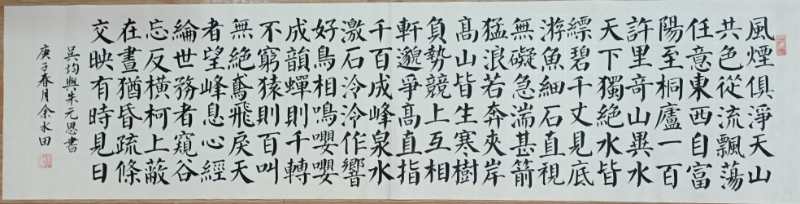 風煙俱淨天山
共色從流飄蕩
任意東西自富
陽至桐廬一百
許里奇山異水
天下獨絕水皆
縹碧千丈見底
游魚細石直視
無礙急湍甚箭
猛浪若奔夾岸
高山皆生寒樹
負勢競上互相
軒邈爭高直指
千百成峰泉水
激石泠泠作響
好鳥相鳴嚶嚶
成韻蟬則千轉
不窮猿則百叫
無絕鳶飛戾天
者望峰息心經
綸世務者窺谷
忘反橫柯上蔽
在晝猶昏疏條
交映有時見日
吳均與朱元思書
庚子春月余水田